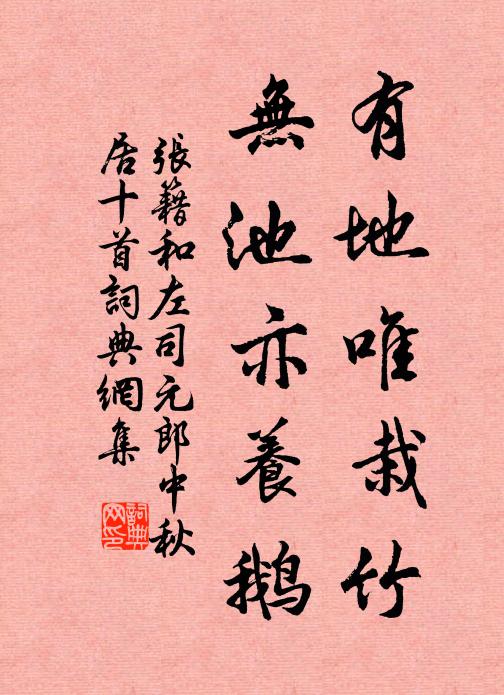 有地唯栽竹
無池亦養鵝
張籍和左司元郎中秋
居十首詞典網集
詞典
网印